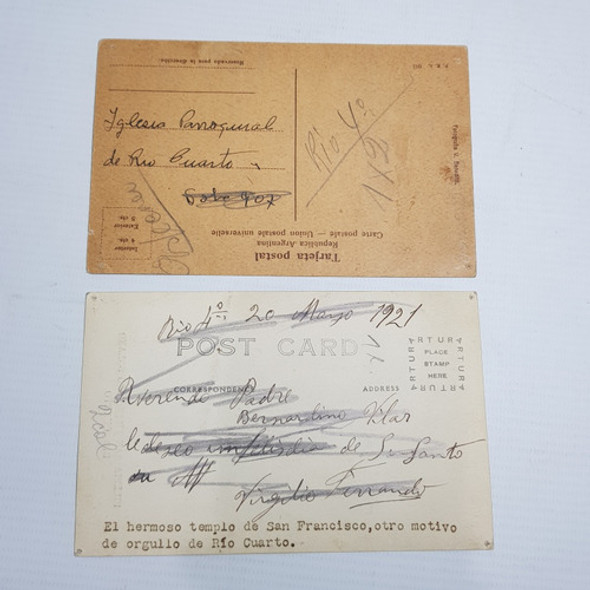 Iglesia Parroquial
de Rio Cuarto
Rio 4º
1x9
Tarjeta postal
República Argentina
Carte postale — Union postale universelle
Reservado para la dirección
Interior
4 cts.
Exterior
5 cts.
Rio 4º 20 Mayo 1921
POST CARD
CORRESPONDENCE
ADDRESS
ARTURA
ARTURA
ARTURA
ARTURA
PLACE
STAMP
HERE
Reverendo Padre
Bernardino Vilar
le deseo de Su Santo
Virgilio Ferrando
El hermoso templo de San Francisco,otro motivo
de orgullo de Río Cuarto.